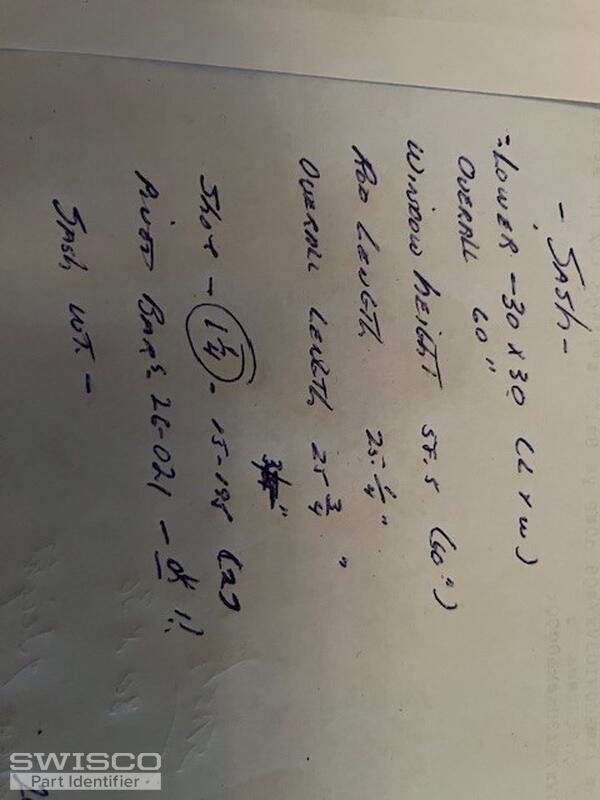 - SASH -
- LOWER - 30 x 30 (L x W)
OVERALL 60"
WINDOW HEIGHT 55.5 (60")
ROD LENGTH 25 1/4"
OVERALL LENGTH 25 3/4"
SHOE - 1 1/4 - 15-195 (2)
PIVOT BARS 26-021 - OK !!
SASH WT. -
SWISCO
Part Identifier